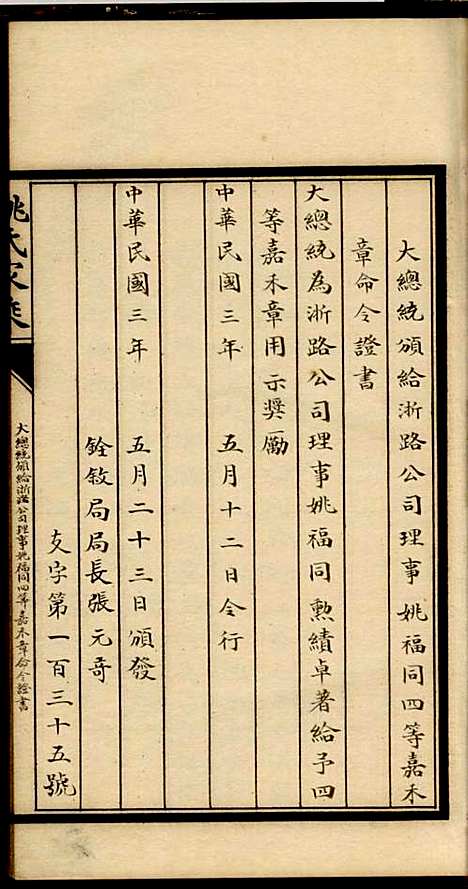 大總統頒給浙路公司理事姚福同四等嘉禾
章命令證書
大總統為浙路公司理事姚福同勲績卓著給予四
等嘉禾章用示奬勵
中華民國三年 五月十二日令行
中華民國三年 五月二十三日頒發
銓敘局局長張元奇
支字第一百三十五號
姚氏家乘
大總統頒給浙路公司理事姚福同四等嘉禾章命令證書